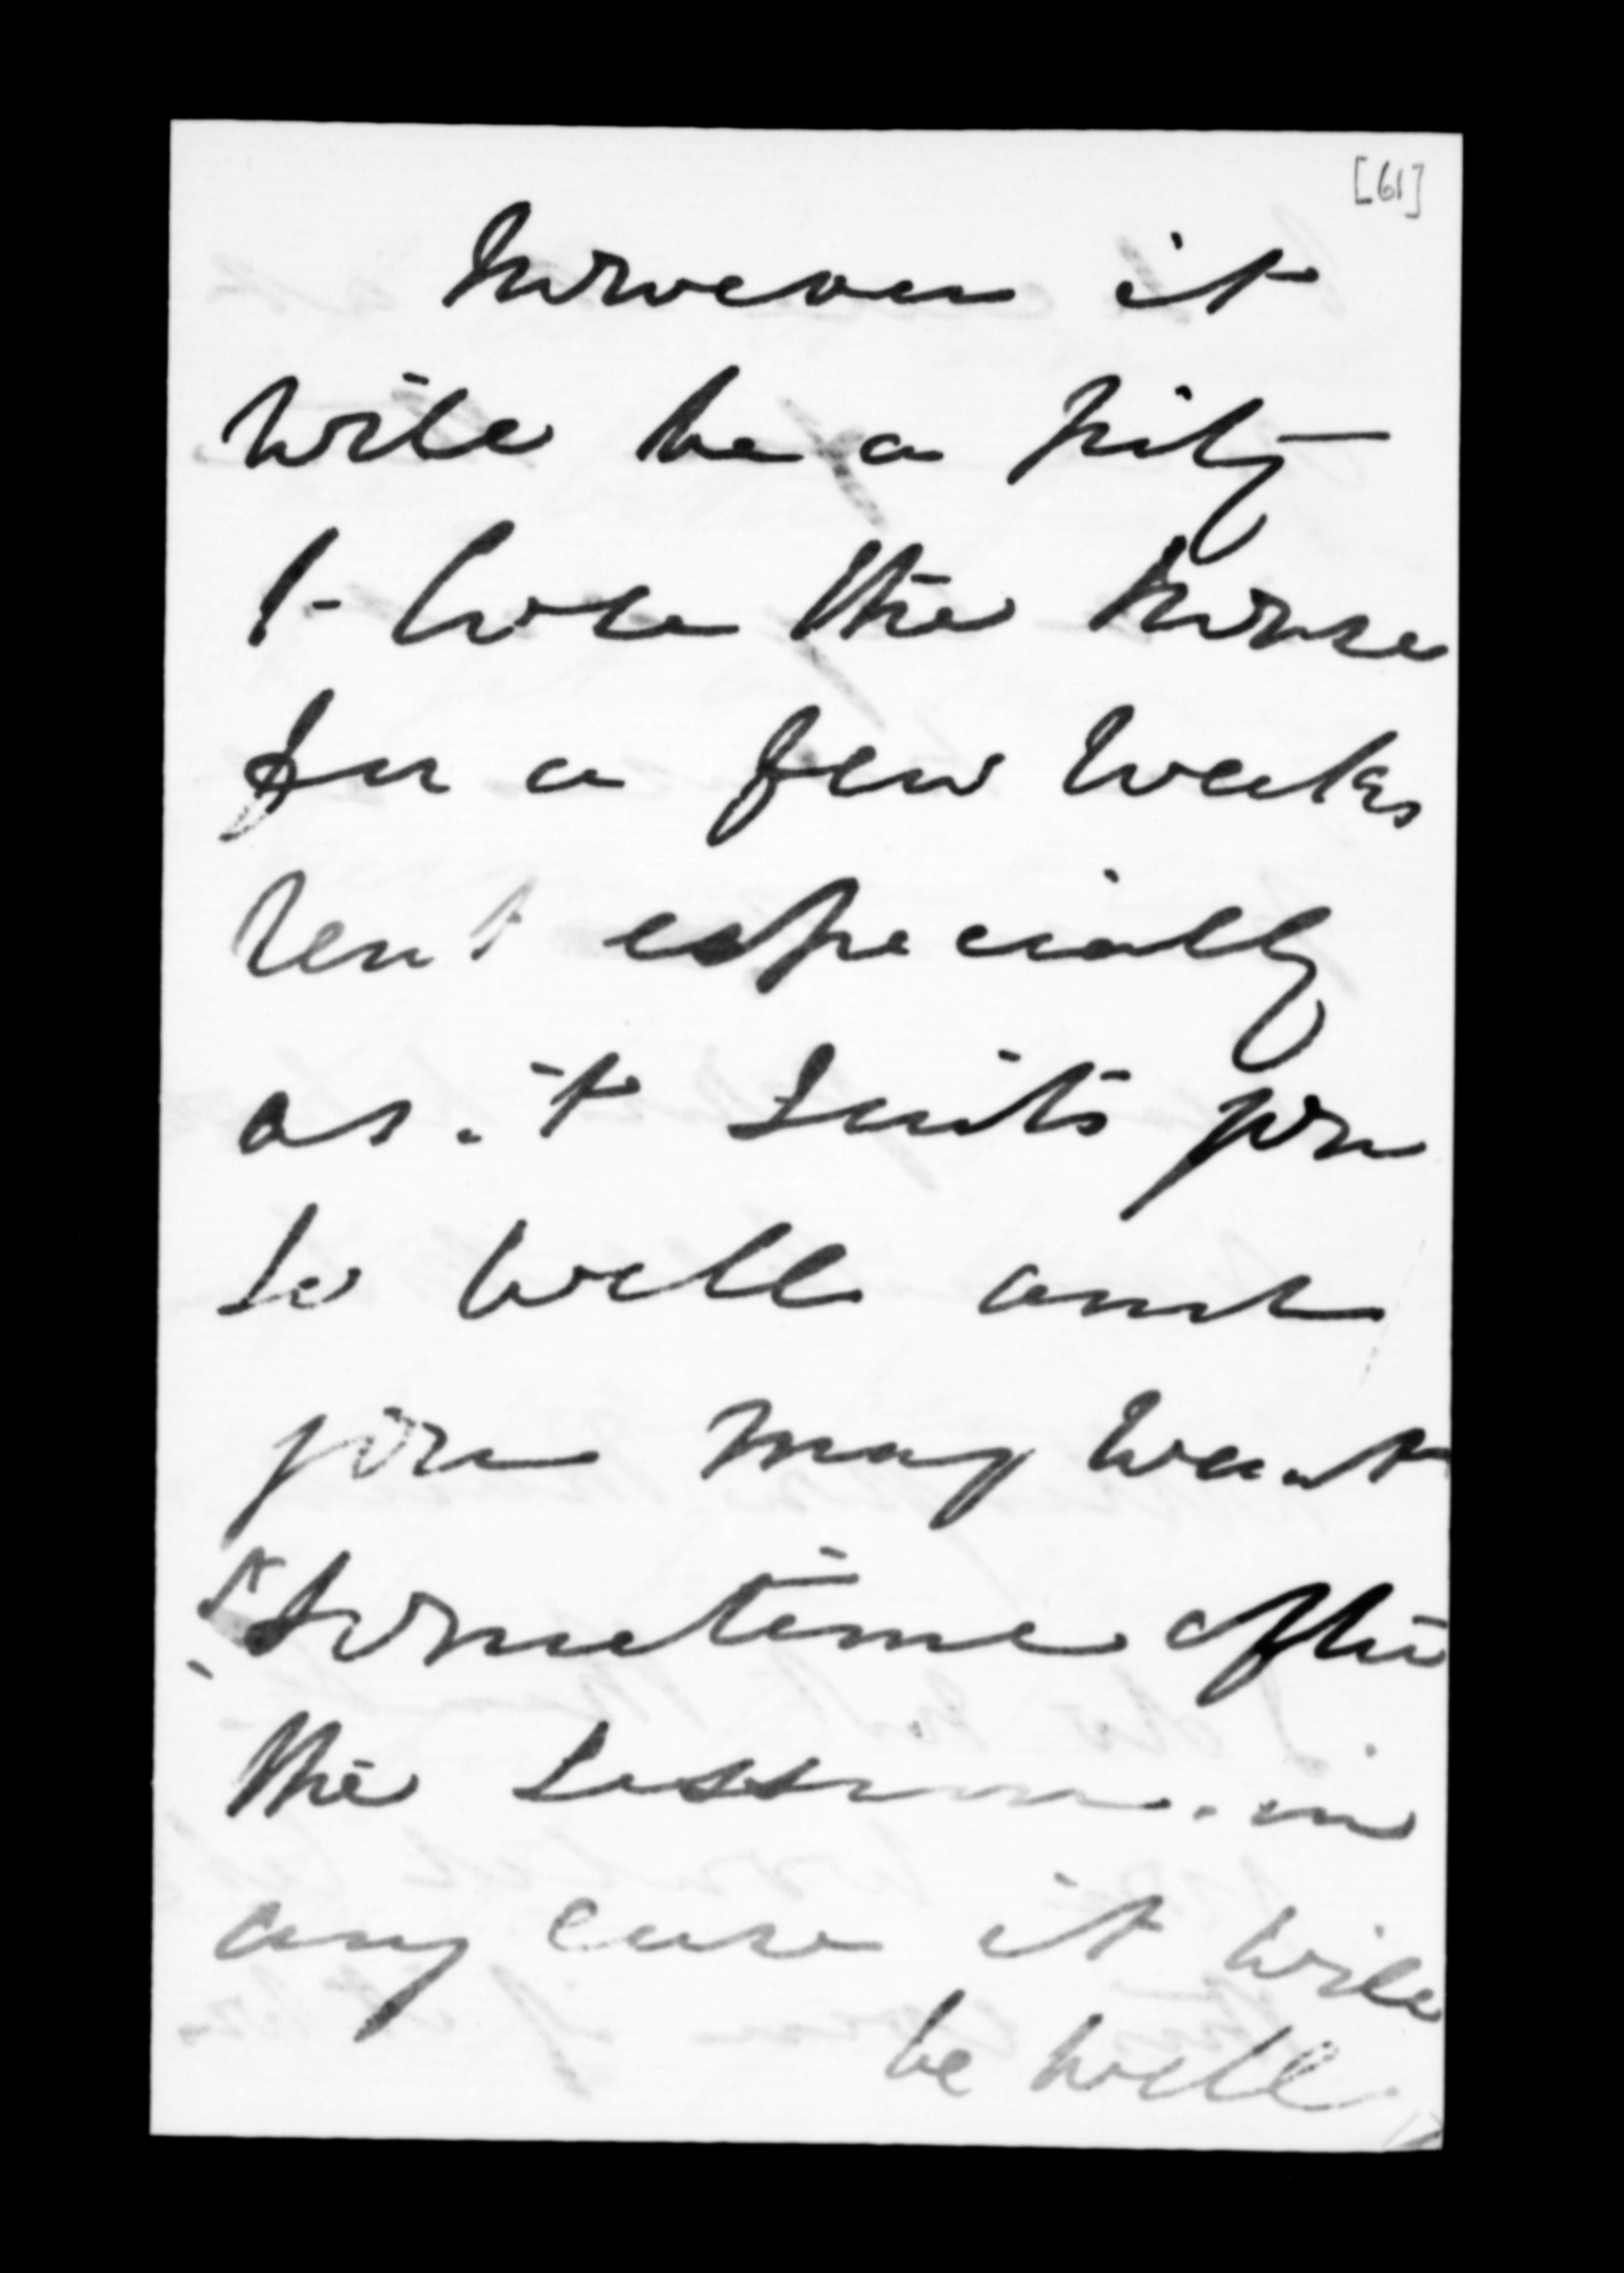 [61]
however it
will be a pity
to lose the house
for a few weeks
rent especially
as it suits you
so well and
you may want
it sometime after
the session. in
any case it will
be well